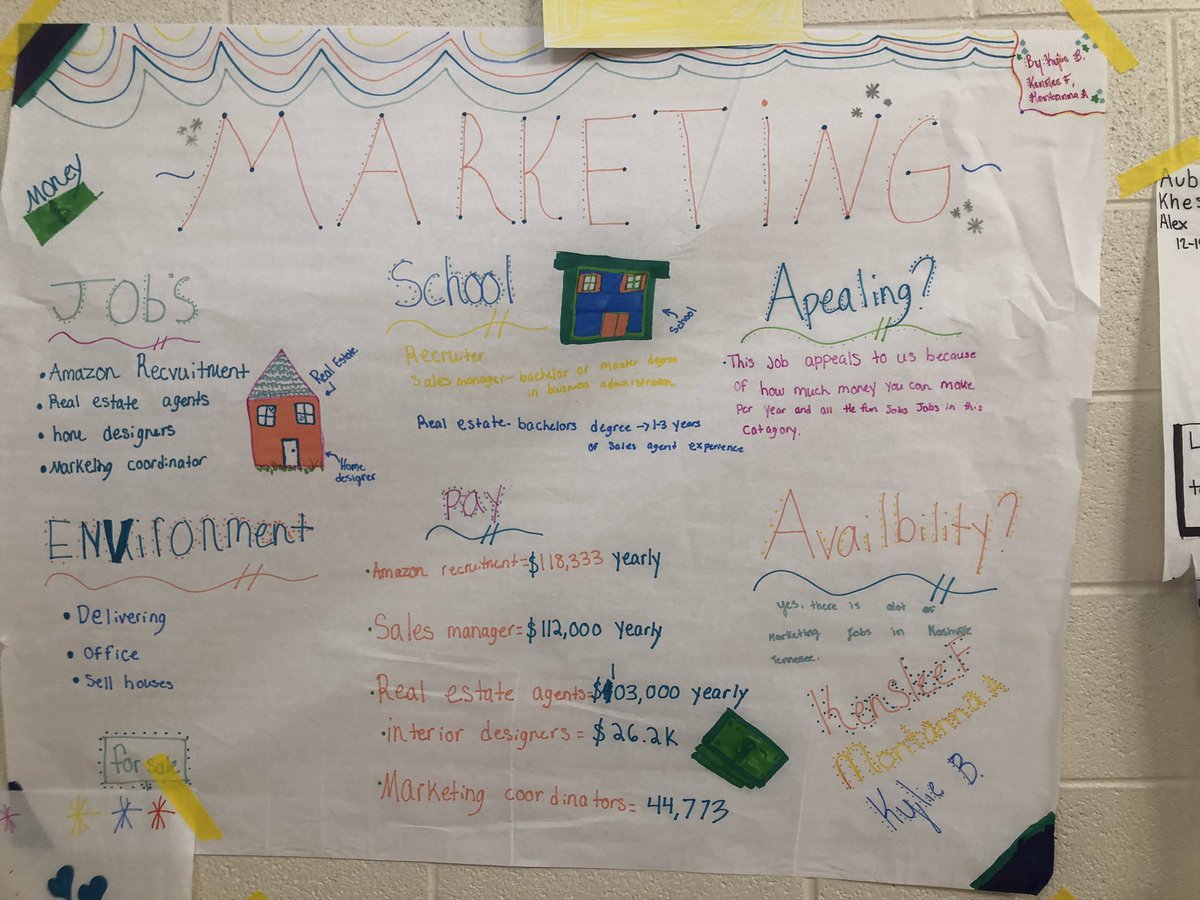 By: Kylie B,
Kenslee F,
Moritanna A
MARKETiNG
Money
JOb's
• Amazon Recruitment
• Real estate agents
• home designers
• Marketing coordinator
Real Estate
Home
designer
School
School
Recruiter
Sales manager- bachelor or master degree
in business administration
Real estate- bachelors degree → 1-3 years
of sales agent experience
Apealing?
• This Job appeals to us because
of how much money you can make
Per year and all the fun Jobs Jobs in this
Catagory.
ENVironment
• Delivering
• office
• Sell houses
for sale
Pay
• Amazon recruitment= $118,333 yearly
• Sales manager= $112,000 yearly
• Real estate agents= $103,000 yearly
• interior designers = $26.2K
• Marketing coordinators= 44,773
Availbility?
Yes, there is alot of
Marketing Jobs in Nashville
Tennessee.
Kenslee F
Moritanna A
Kylie B.
Aub
Khes
Alex